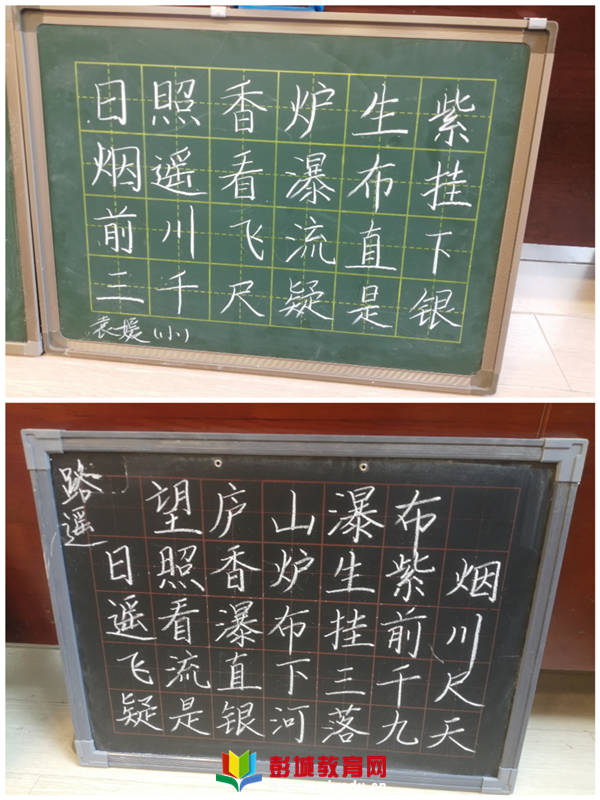 日照香炉生紫
烟遥看瀑布挂
前川飞流直下
三千尺疑是银
袁媛(小)
路遥
望庐山瀑布
日照香炉生紫烟
遥看瀑布挂前川
飞流直下三千尺
疑是银河落九天
彭城教育网